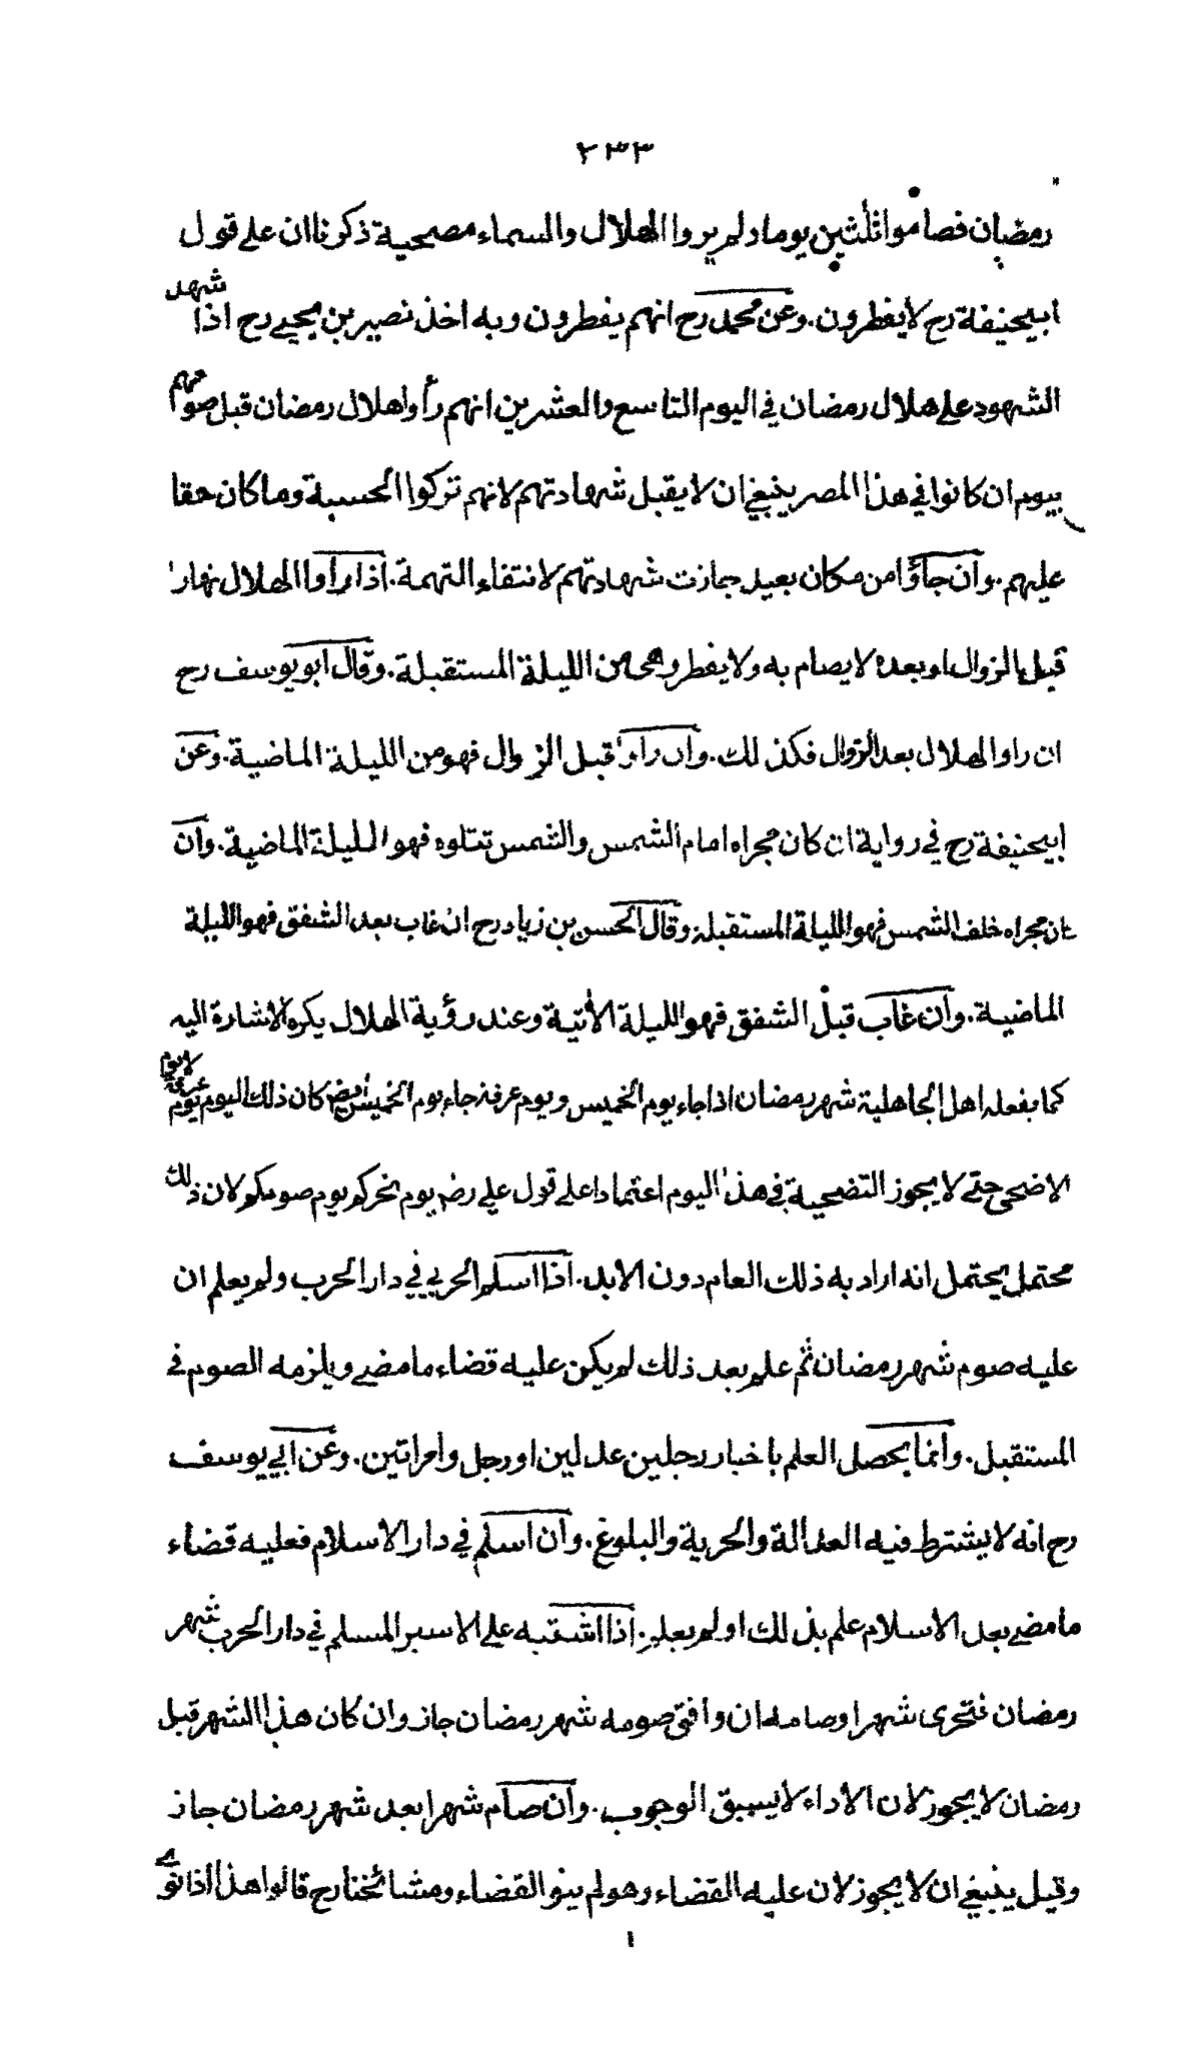 ٢٣٣
رمضان فصاموا ثلثين يوما ولم يروا الهلال والسماء مصحية ذكرنا ان على قول
ابيحنيفة رح لا يفطرون . وعن محمد رح انهم يفطرون وبه اخذ نصير بن يحيى رح اذا شهد
الشهود على هلال رمضان في اليوم التاسع والعشرين انهم رأوا هلال رمضان قبل صومهم
بيوم ان كانوا في هذا المصر ينبغي ان لا يقبل شهادتهم لانهم تركوا الحسبة وما كان حقا
عليهم . وان جاؤا من مكان بعيد جازت شهادتهم لانتفاء التهمة . اذا راوا الهلال نهارا
قبل الزوال او بعده لا يصام به ولا يفطر وهي من الليلة المستقبلة . وقال ابو يوسف رح
ان راوا الهلال بعد الزوال فكذلك . وان راوا قبل الزوال فهو من الليلة الماضية . وعن
ابيحنيفة رح في رواية ان كان مجراه امام الشمس والشمس تتلوه فهو الليلة الماضية . وان
كان مجراه خلف الشمس فهو الليلة المستقبلة وقال الحسن بن زياد رح ان غاب بعد الشفق فهو الليلة
الماضية . وان غاب قبل الشفق فهو الليلة الأتية وعند رؤية الهلال يكره الاشارة اليه
كما يفعله اهل الجاهلية شهر رمضان اذا جاء يوم الخميس ويوم عرفة جاء يوم الخميس ايض كان ذلك اليوم يوم عرفة لا يوم
الاضحى حتى لا يجوز التضحية في هذا اليوم اعتمادا على قول علي رض يوم نحركم يوم صومكم لان ذلك
محتمل يحتمل انه اراد به ذلك العام دون الابد . اذا اسلم الحربي في دار الحرب ولم يعلم ان
عليه صوم شهر رمضان ثم علم بعد ذلك لم يكن عليه قضاء ما مضى ويلزمه الصوم في
المستقبل . وانما يحصل العلم باخبار رجلين عدلين او رجل وامراتين . وعن ابي يوسف
رح انه لا يشترط فيه العدالة والحرية والبلوغ . وان اسلم في دار الاسلام فعليه قضاء
ما مضى بعد الاسلام علم بذلك اولم يعلم . اذا اشتبه على الاسير المسلم في دار الحرب شهر
رمضان فتحرى شهرا وصامه ان وافق صومه شهر رمضان جاز وان كان هذا الشهر قبل
رمضان لا يجوز لان الأداء لا يسبق الوجوب . وان صام شهرا بعد شهر رمضان جاز
وقيل ينبغي ان لا يجوز لان عليه القضاء وهو لم ينو القضاء ومشائخنا رح قالوا هذا اذا نوى